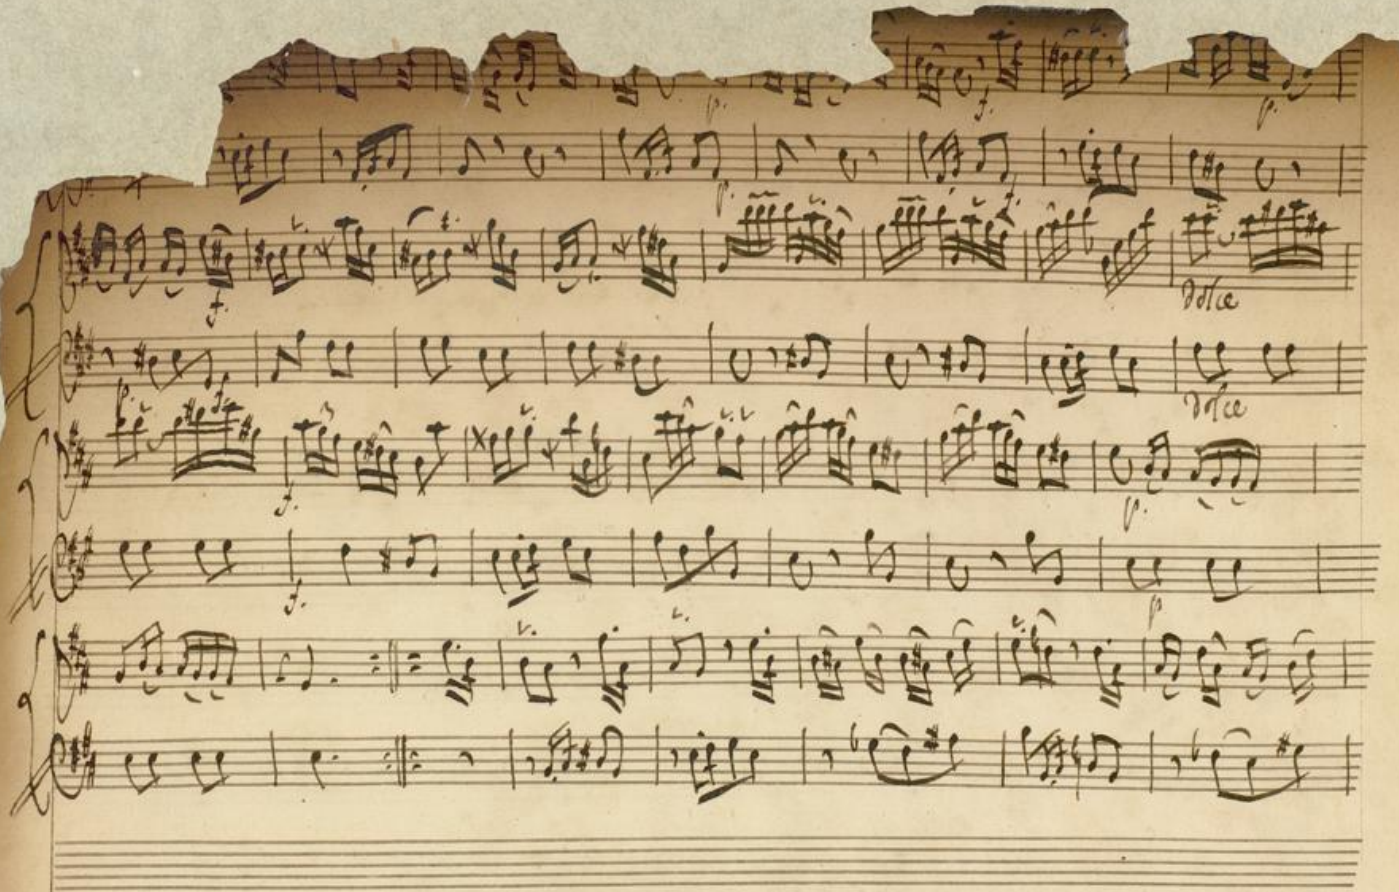 p. f. p.
p. f.
f. dolce
p. f. dolce
f. p.
f. p